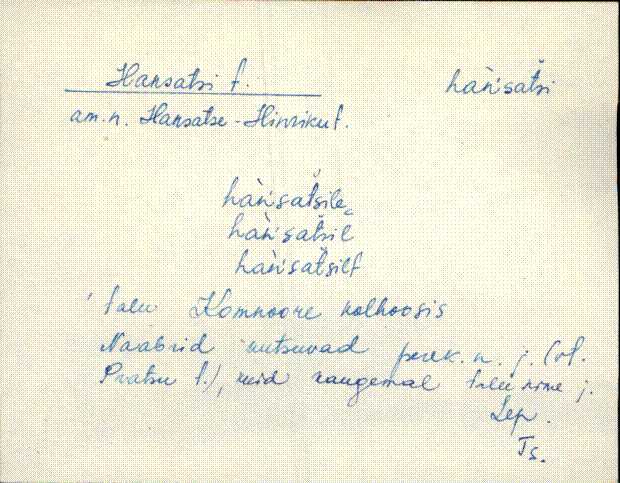 Hansatsi t. hàn'satši
am.n. Hansatse-Hinriku t.
hàn'satšile
hàn'satšil
hàn'satšilt
talu Komnoore kolhoosis
Naabrid kutsuvad perek. n. j. (vt.
Pratsu t.), kuid kaugemal talu nime j.
Lep.
Ts.